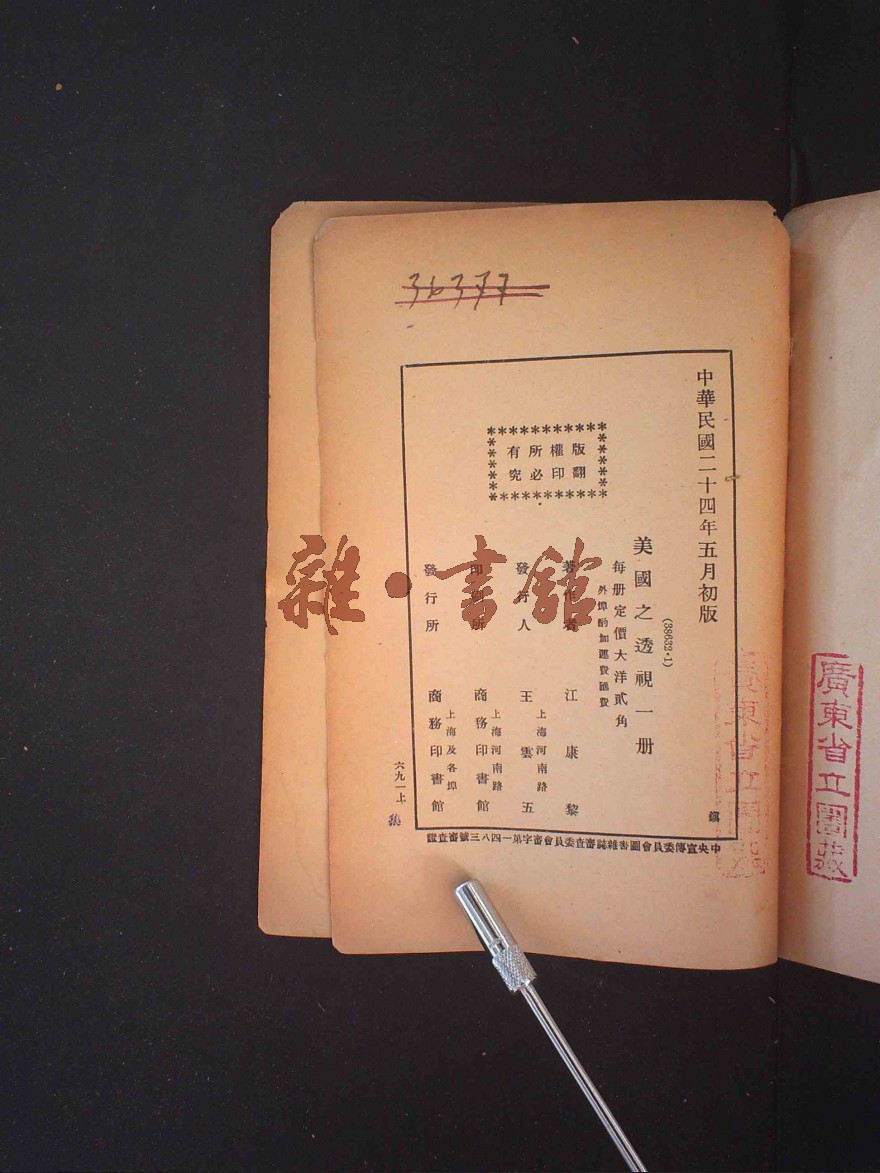 36377
中華民國二十四年五月初版
(38632·1)
美國之透視一册
每册定價大洋貳角
外埠酌加運費匯費
版權所有
翻印必究
著作者 江康黎
上海河南路
發行人 王雲五
上海河南路
印刷所 商務印書館
上海及各埠
發行所 商務印書館
六九一上
中央宣傳委員會圖書雜誌審查委員會審字第一四八三號審查證
雜·書館
廣東省立圖藏